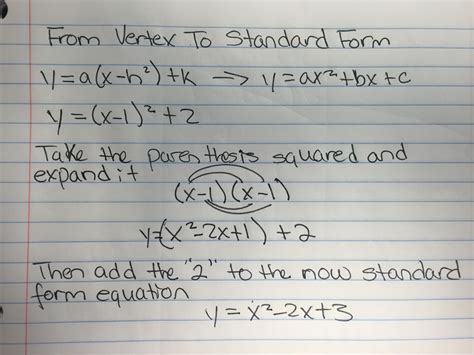 From Vertex To Standard Form
y=a(x-h²)+k → y=ax²+bx+c
y=(x-1)²+2
Take the parenthesis squared and
expand it
(x-1)(x-1)
y=(x²-2x+1)+2
Then add the "2" to the now standard
form equation
y=x²-2x+3